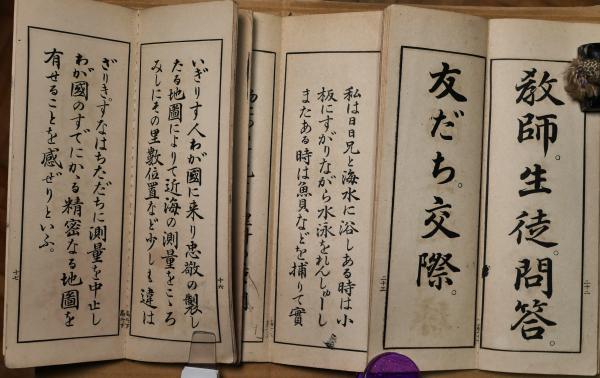 教師。生徒。問答。
二十二
友だち。交際。
私は日日兄と海水に浴しある時は小
板にすがりながら水泳をれんしゅーし
またある時は魚貝などを捕りて實
二十三
いぎりす人わが國に来り忠敬の製し
たる地圖によりて近海の測量をこころ
みしにその里數位置など少しも違は
十六
ざりき。すなはちただちに測量を中止し
わが國のすでにかゝる精密なる地圖を
有せることを感ぜりといふ。
十七